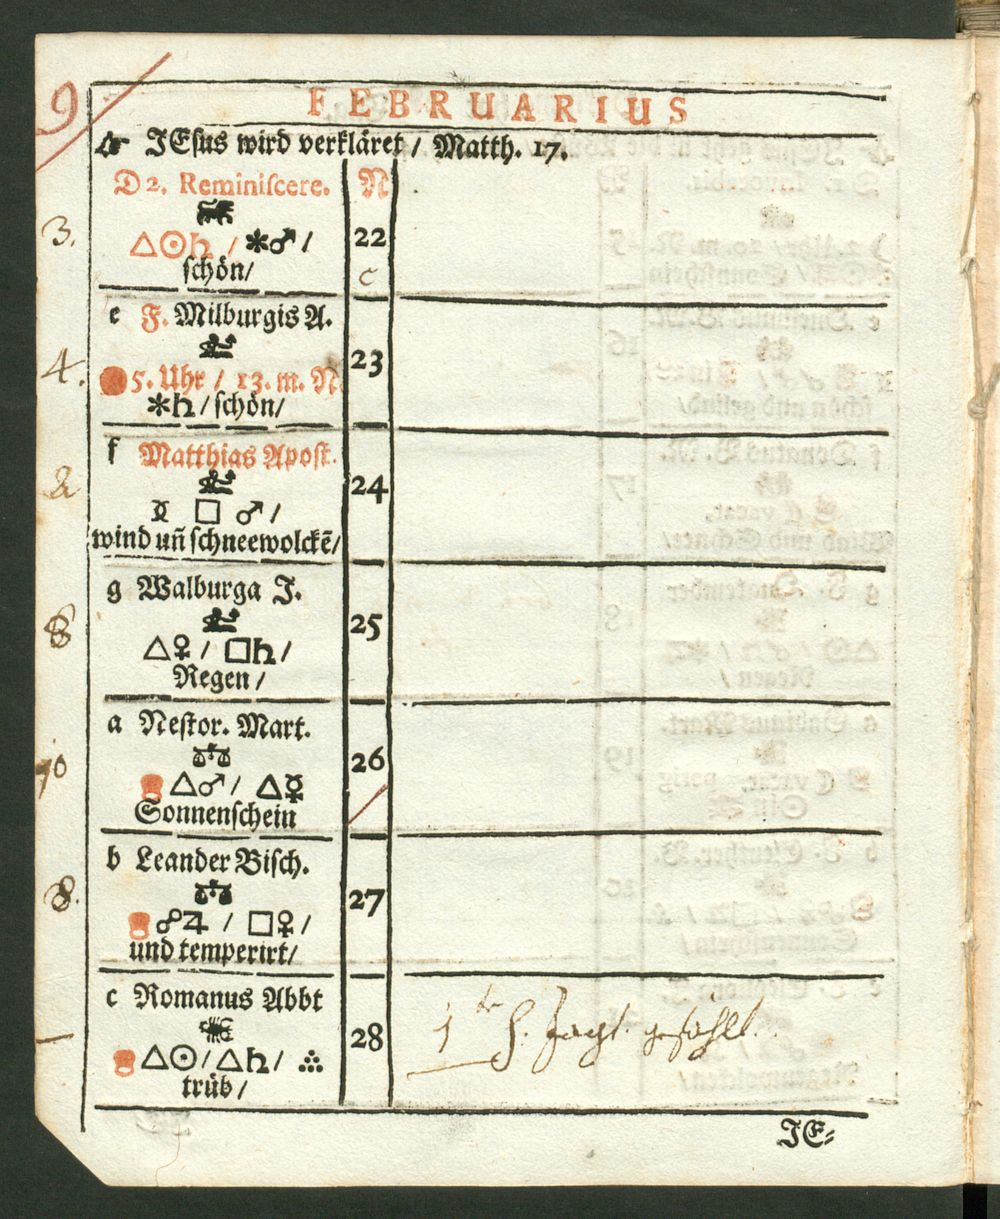 9
FEBRUARIUS
☞ JEsus wird verkläret / Matth. 17.
D 2. Reminiscere. N
3. △☉♄ / ✶♂ / 22
schön/ c
e F. Milburgis A.
4. 5. Uhr / 13. m. N. 23
✶♄ / schön/
f Matthias Apost.
24
□ ♂ /
wind uñ schneewolckē/
g Walburga J.
8 △♀ / □♄ / 25
Regen /
a Nestor. Mart.
10 △♂ / △☿ 26
Sonnenschein
b Leander Bisch.
8. ☍♃ / □♀ / 27
und temperirt/
c Romanus Abbt
△☉ / △♄ / ∴ 28
trüb /
JE-